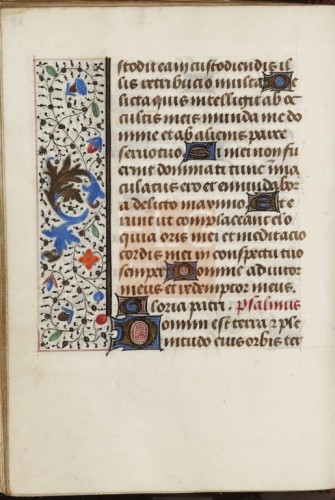 stodit ea in custodiendis il
lis retributio multa De
licta quis intelligit ab oc
cultis meis munda me do
mine et ab alienis parce
servo tuo Si mei non fu
erint dominati tunc ima
culatus ero et emundabor
a delicto maximo Et e
runt ut complaceant elo
quia oris mei et meditacio
cordis mei in conspectu tuo
semper Domine adiutor
meus et redemptor meus.
Gloria patri. psalmus
Domini est terra et ple
nitudo eius orbis ter